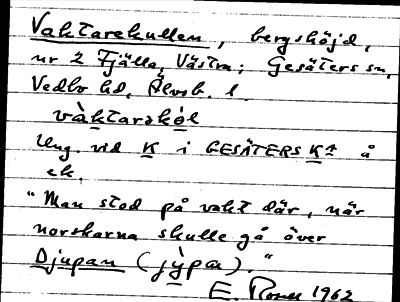 Vaktarekullen, bergshöjd,
nr 2 Fjälla, Västra; Gesäters sn,
Vedbo hd, Älvsb. l.
vàktarskòl
Ung. vid K i GESÄTERS Ka å
ek.
"Man stod på vakt där, när
norskarna skulle gå över
Djupan (jỳpa)."
E. 1962